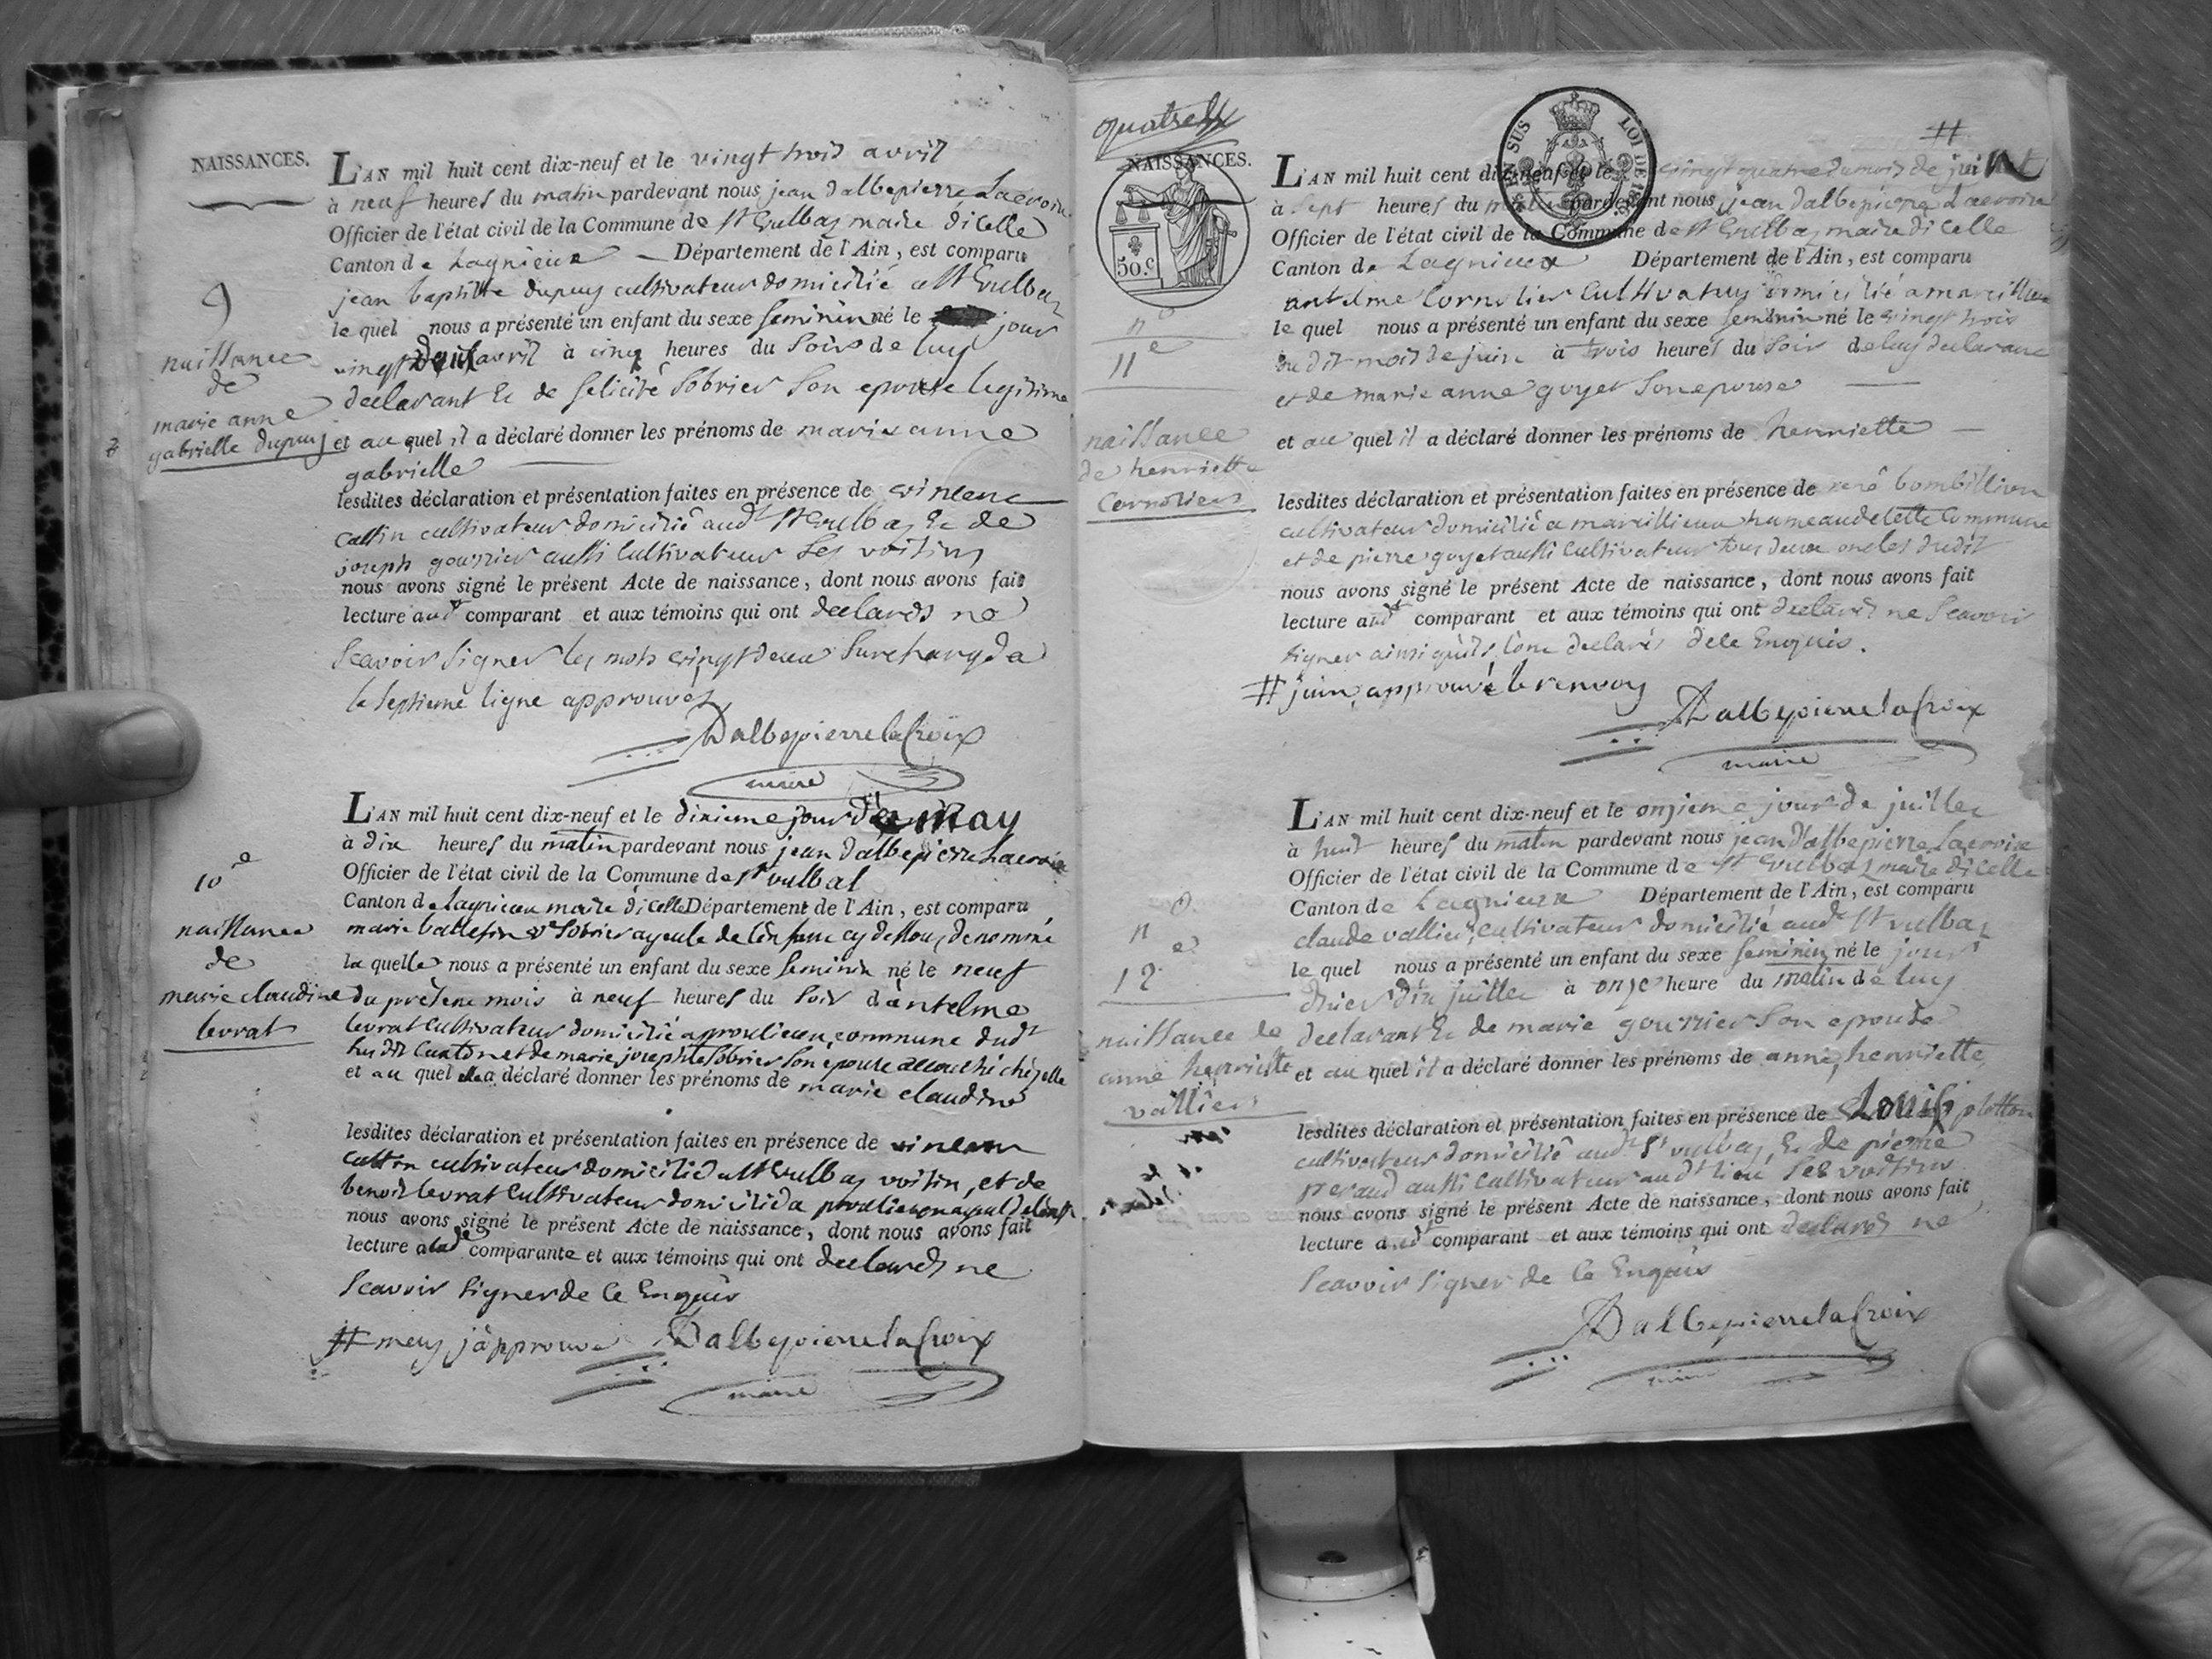 NAISSANCES.
L'AN mil huit cent dix-neuf et le vingt trois avril
à neuf heures du matin pardevant nous jean dalbepierre Lacroix
Officier de l'état civil de la Commune de St Vulbaz maire dicelle
Canton de Lagnieux Département de l'Ain, est comparu
jean baptiste dupuy cultivateur domicilié a St Vulbaz
le quel nous a présenté un enfant du sexe feminin né le jour
vingt deux avril à cinq heures du soir de luy
declarant & de felicité sobrier son epouse legitime
et au quel il a déclaré donner les prénoms de marie anne
gabrielle
lesdites déclaration et présentation faites en présence de vincent
cultivateur domicilié aud St Vulbaz & de
joseph gourrier aussi cultivateur ses voisins
nous avons signé le présent Acte de naissance, dont nous avons fait
lecture audt comparant et aux témoins qui ont declarés ne
scavoir signer les mots vingt deux surchargé a
la septieme ligne approuvés
Dalbepierrelacroix
maire
9
naissance
de
marie anne
gabrielle dupuy
L'AN mil huit cent dix-neuf et le dixieme jour de may
à dix heures du matin pardevant nous jean dalbepierre Lacroix
Officier de l'état civil de la Commune de St vulbas
Canton de Lagnieux maire dicelle Département de l'Ain, est comparu
marie ve sobrier ayeule de lenfant cy dessous denommé
la quelle nous a présenté un enfant du sexe feminin né le neuf
du present mois à neuf heures du soir dantelme
levrat cultivateur domicilié a proulieu commune dudt
canton et de marie josephte sobrier son epouse accouché chez elle
et au quel elle a déclaré donner les prénoms de marie claudine
lesdites déclaration et présentation faites en présence de vincent
cultivateur domicilié a St Vulbaz voisin, et de
benoit levrat cultivateur domicilié a proulieu ayeul de
nous avons signé le présent Acte de naissance, dont nous avons fait
lecture a lade comparante et aux témoins qui ont declarés ne
scavoir signer de ce Enquis
# may japprouve Dalbepierrelacroix
maire
10e
naissance
de
marie claudine
levrat
NAISSANCES.
50.c
EN SUS
LOI DE 18
L'AN mil huit cent dix-neuf et le vingt quatre du mois de #
à sept heures du matin pardevant nous jean dalbepierre Lacroix
Officier de l'état civil de la Commune de St Vulbaz maire dicelle
Canton de Lagnieux Département de l'Ain, est comparu
antelme Cornolier Cultivateur domicilié a marcillieu
le quel nous a présenté un enfant du sexe feminin né le vingt trois
du dit mois de juin à trois heures du soir de luy declarant
et de marie anne goyet son epouse
et au quel il a déclaré donner les prénoms de henriette
lesdites déclaration et présentation faites en présence de rené bombillion
cultivateur domicilié a marcillieux hameau de cette Commune
et de pierre goyet aussi cultivateur tous deux oncles dudit
nous avons signé le présent Acte de naissance, dont nous avons fait
lecture audt comparant et aux témoins qui ont declarés ne scavoir
signer ainsi quils lont declarés de ce Enquis.
# juin, approuvé le renvoy
Dalbepierrelacroix
maire
n°
11e
naissance
de henriette
Cornolier
L'AN mil huit cent dix-neuf et le onzieme jour de juillet
à huit heures du matin pardevant nous jean dalbepierre Lacroix
Officier de l'état civil de la Commune de St Vulbaz maire dicelle
Canton de Lagnieux Département de l'Ain, est comparu
claude vallier, cultivateur domicilié audt St vulbaz
le quel nous a présenté un enfant du sexe feminin né le jour
dhier dix juillet à onze heure du matin de luy
declarant & de marie gourrier son epouse
et au quel il a déclaré donner les prénoms de anne, henriette
lesdites déclaration et présentation faites en présence de Louis plotton
cultivateur domicilié audt St vulbaz, & de pierre
peraud aussi cultivateur audt lieu ses voisins
nous avons signé le présent Acte de naissance, dont nous avons fait
lecture audt comparant et aux témoins qui ont declarés ne
scavoir signer de ce Enquis
Dalbepierrelacroix
maire
n°
12e
naissance de
anne henriette
vallier